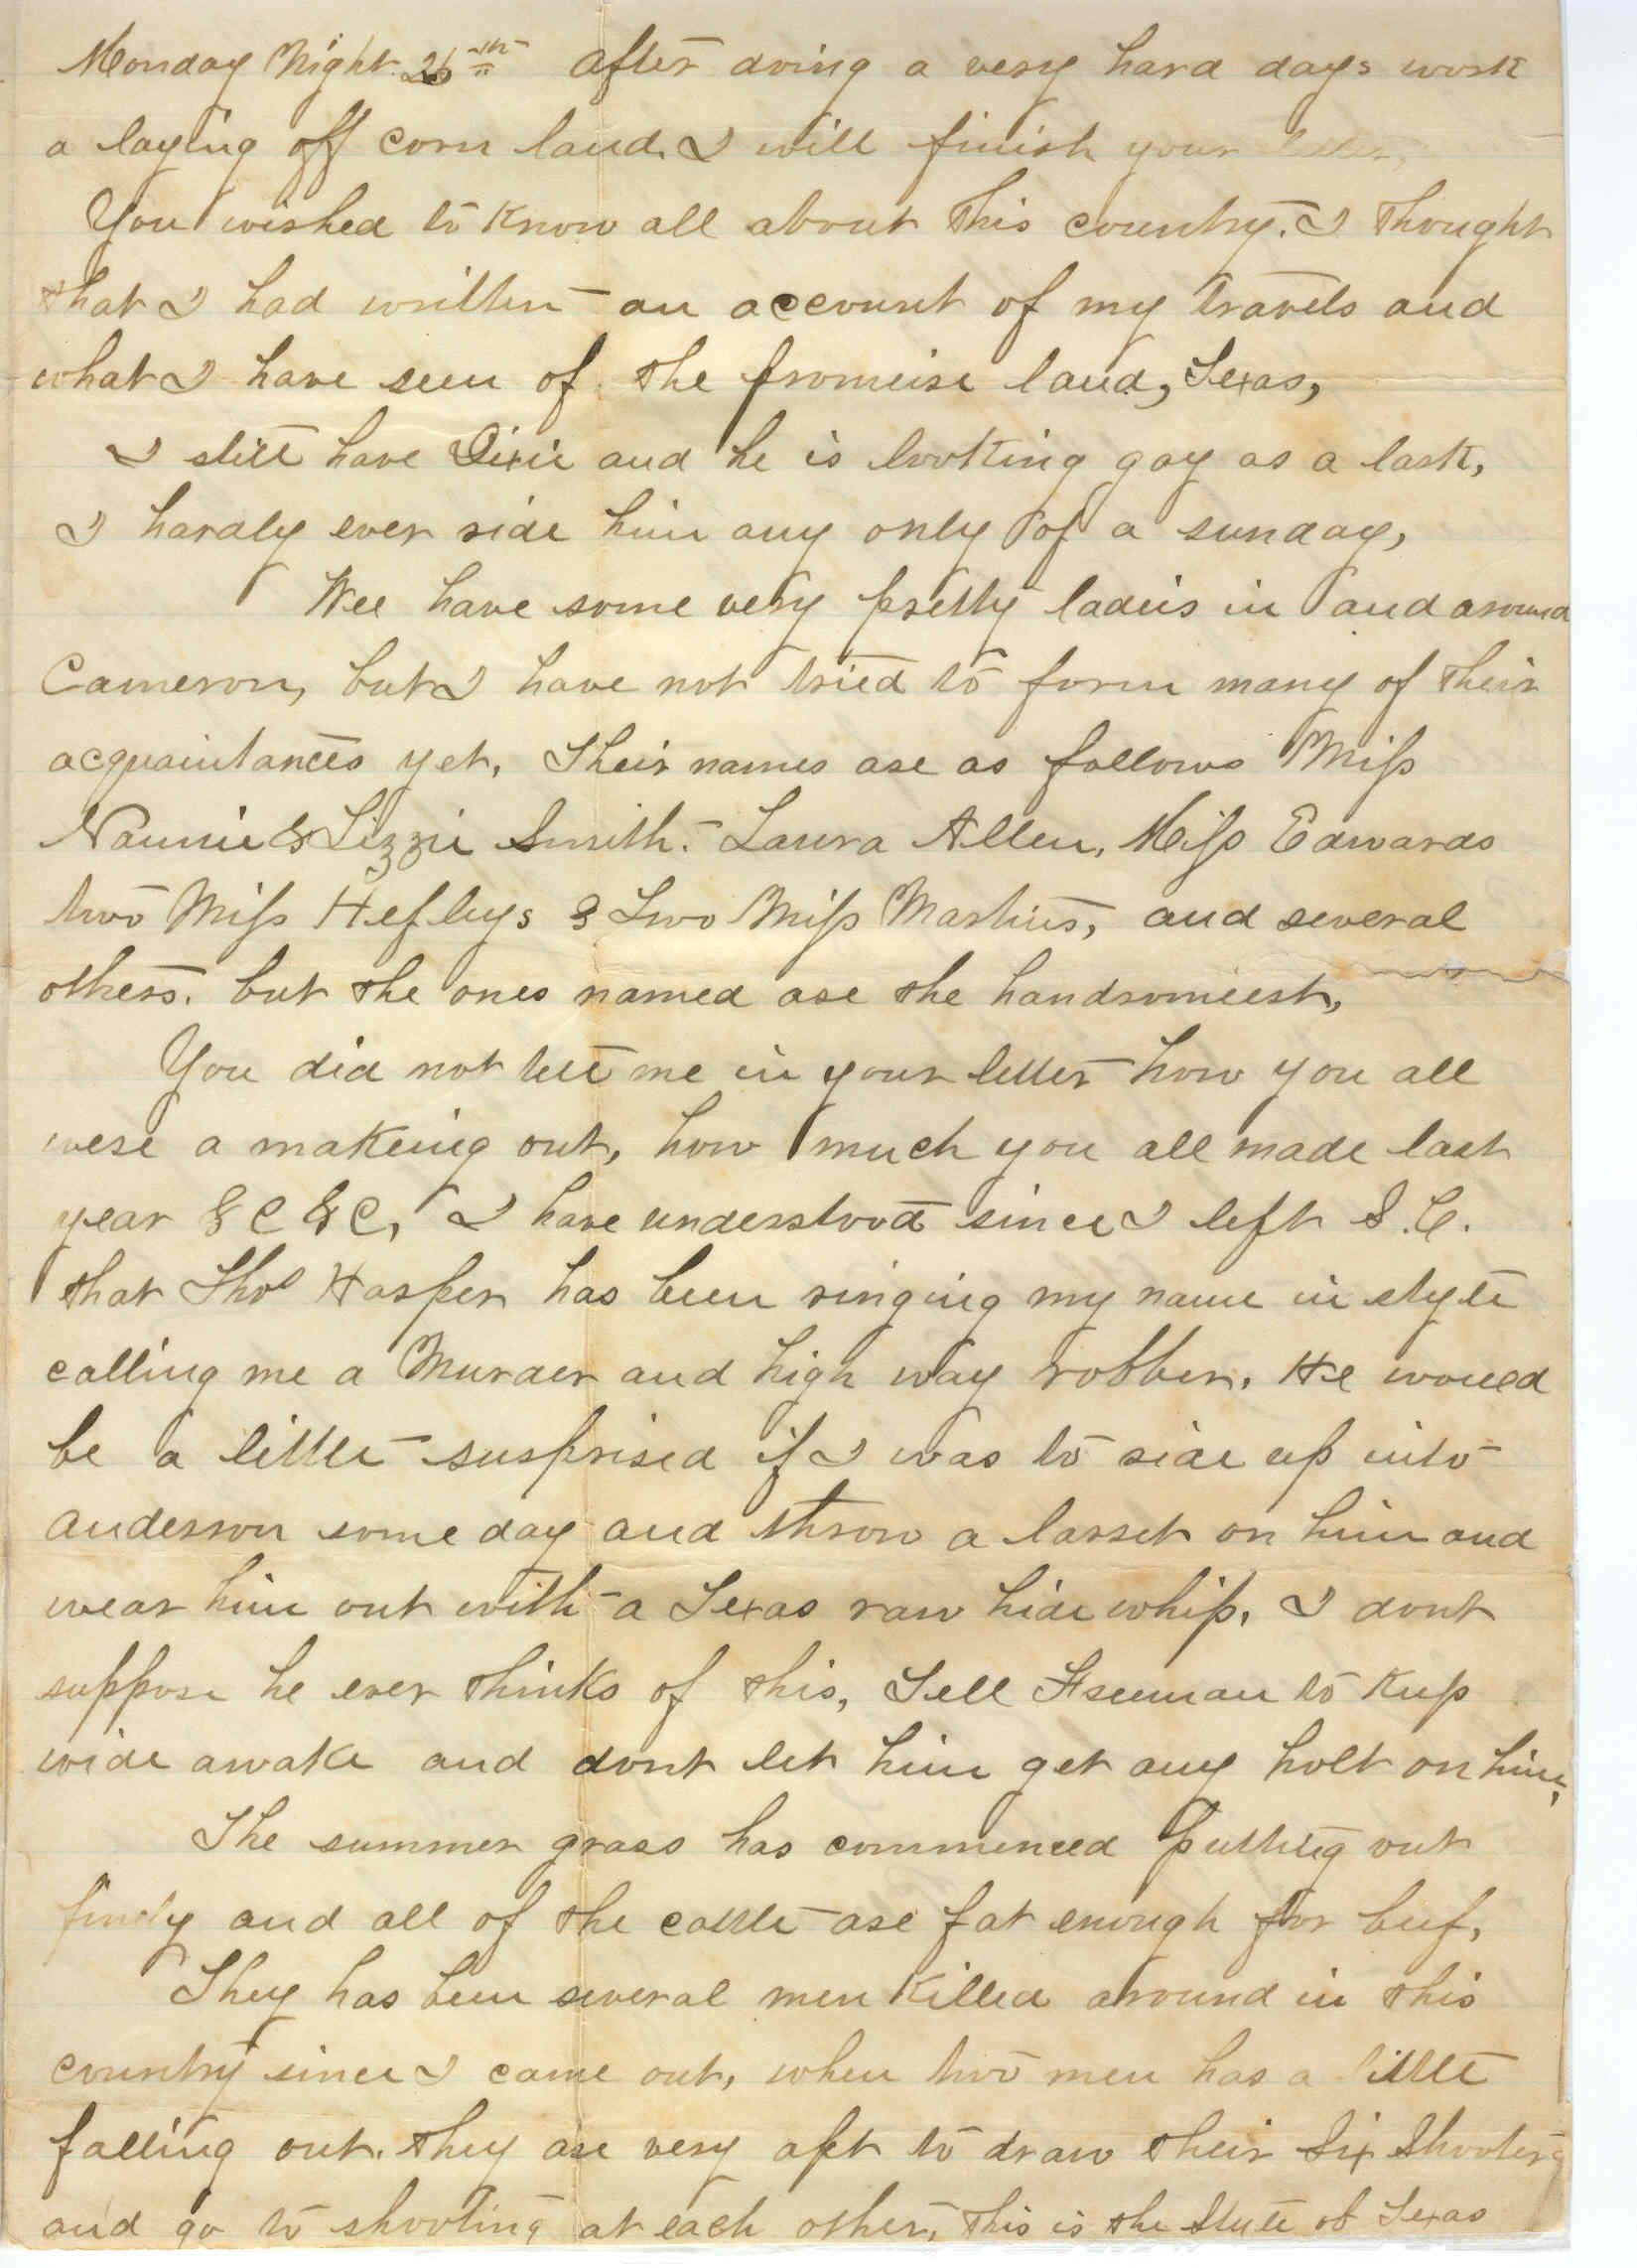 Monday Night 26th After doing a very hard days work
a laying off corn land. I will finish your letter,
You wished to know all about this country. I thought
that I had written an account of my travels and
what I have seen of the promise land, Texas,
I still have Dixie and he is looking gay as a lark,
I hardly ever ride him any only of a sunday,
Wee have some very pretty ladies in and around
Cameron, but I have not tried to form many of their
acquaintances yet, Their names are as follows Miss
Nannie & Lizzie Smith. Laura Allen, Miss Edwards
two Miss Hefleys & Two Miss Martins, and several
others. but the ones named are the handsomiest,
You did not tell me in your letter how you all
were a makeing out, how much you all made last
year &C &C, I have understood since I left S.C.
that Thos Harper has been ringing my name in style
calling me a Murder and high way robber. He would
be a little surprised if I was to ride up into
Anderson some day and throw a lasset on him and
wear him out with a Texas raw hide whip. I dont
suppose he ever thinks of this, Tell Freeman to keep
wide awake and dont let him get any holt on him,
The summer grass has commenced putting out
finely and all of the cattle are fat enough for beef,
They has been several men killed around in this
country since I came out, when two men has a little
falling out. they are very apt to draw their Six Shooters
and go to shooting at each other, this is the State of Texas